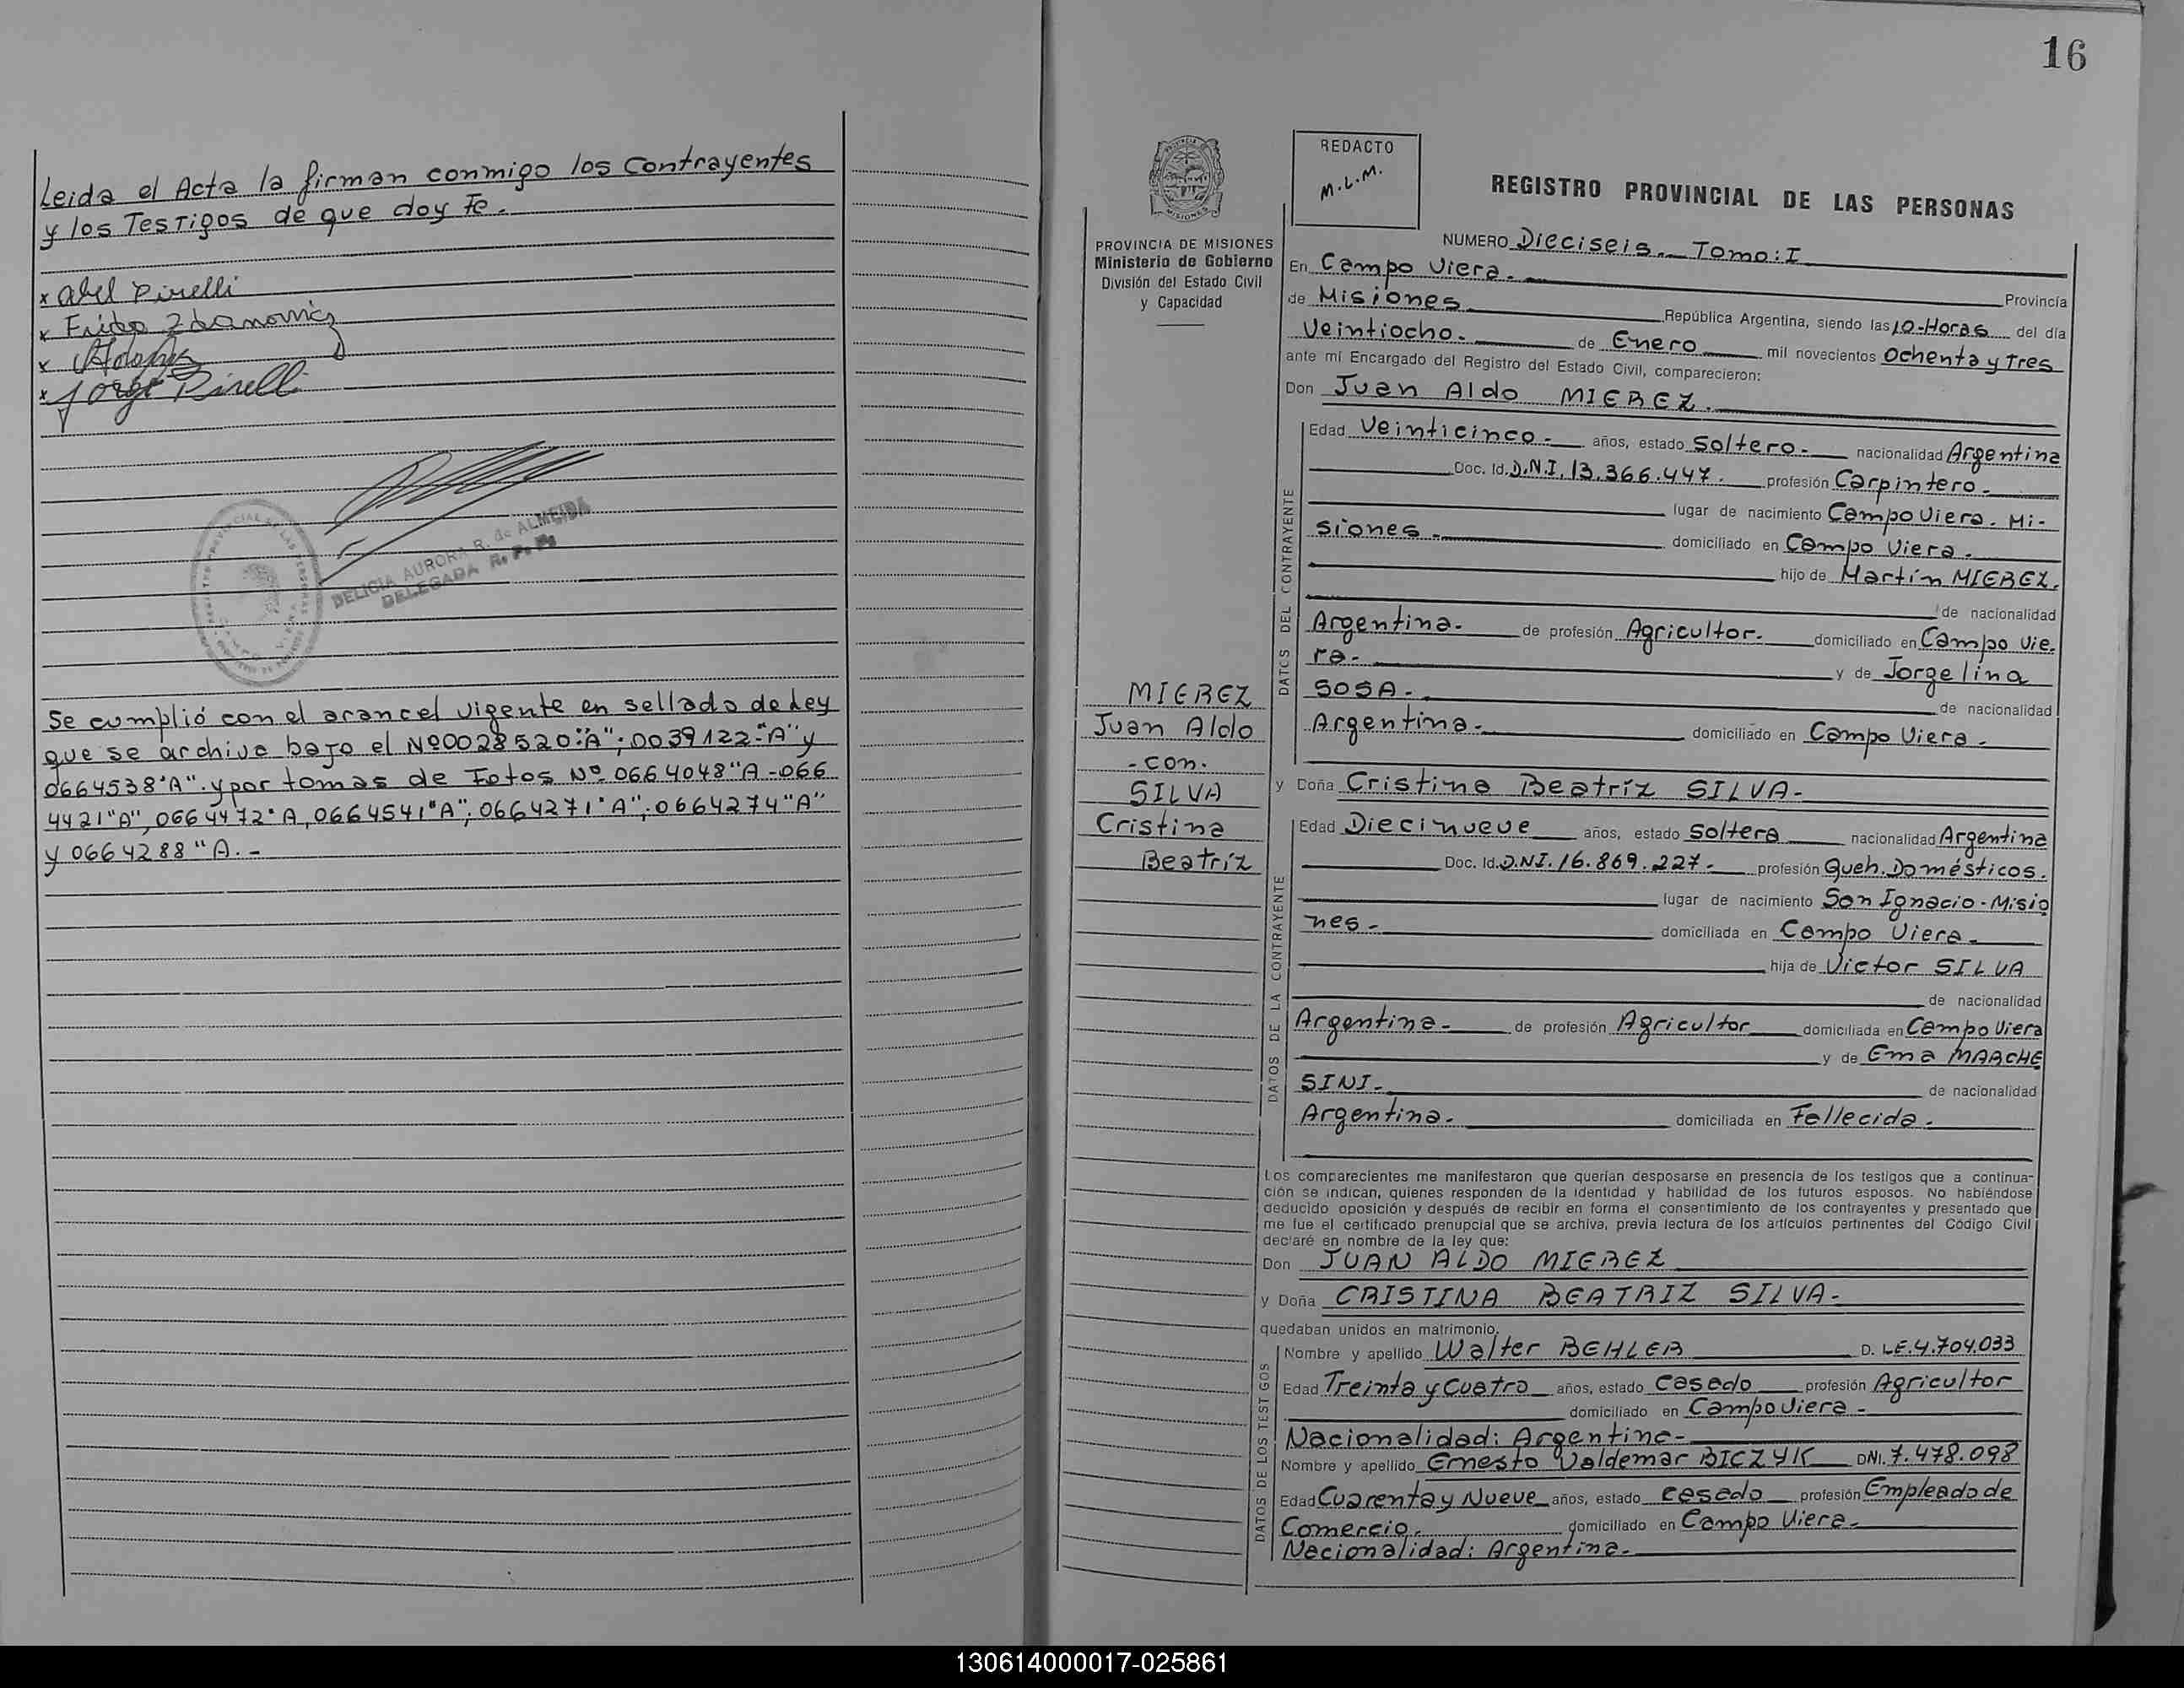 Leida el Acta la firman conmigo los Contrayentes
y los Testigos de que doy Fe.
x Abel Pirelli
x
x
x Jorge Pirelli
DELICIA AURORA R. de ALMEIDA
DELEGADA R. P. P.
Se cumplió con el arancel vigente en sellado de Ley
que se archiva bajo el Nº0028520"A"; 0039122"A" y
0664538"A". y por tomas de Fotos Nº 0664048"A-066
4421"A", 0664472"A, 0664541"A"; 0664271"A"; 0664274"A"
y 0664288"A.-
16
PROVINCIA DE MISIONES
Ministerio de Gobierno
División del Estado Civil
y Capacidad
MIEREZ
Juan Aldo
-con.
SILVA
Cristina
Beatríz
REDACTO
M.L.M.
REGISTRO PROVINCIAL DE LAS PERSONAS
NUMERO Dieciseis.- Tomo: I
En Campo Viera.- Provincia
de Misiones República Argentina, siendo las 10-Horas del día
Veintiocho.- de Enero mil novecientos Ochenta y Tres
ante mí Encargado del Registro del Estado Civil, comparecieron:
Don Juan Aldo MIEREZ.
DATOS DEL CONTRAYENTE
Edad Veinticinco.- años, estado Soltero.- nacionalidad Argentina
Doc. Id. D.N.I. 13.366.447.- profesión Carpintero.-
lugar de nacimiento Campo Viera. Mi-
siones.- domiciliado en Campo Viera.-
hijo de Martín MIEREZ.
de nacionalidad
Argentina.- de profesión Agricultor.- domiciliado en Campo Vie.
ra.- y de Jorgelina
SOSA.- de nacionalidad
Argentina.- domiciliado en Campo Viera.-
y Doña Cristina Beatríz SILVA-
DATOS DE LA CONTRAYENTE
Edad Diecinueve años, estado Soltera nacionalidad Argentina
Doc. Id. D.NI. 16.869.227.- profesión Queh. Domésticos.
lugar de nacimiento San Ignacio-Misio
nes.- domiciliada en Campo Viera.-
hija de Victor SILVA
de nacionalidad
Argentina- de profesión Agricultor domiciliada en Campo Viera
y de Ema MARCHE
SINI.- de nacionalidad
Argentina.- domiciliada en Fallecida.-
Los comparecientes me manifestaron que querían desposarse en presencia de los testigos que a continua-
ción se indican, quienes responden de la identidad y habilidad de los futuros esposos. No habiéndose
deducido oposición y después de recibir en forma el consentimiento de los contrayentes y presentado que
me fue el certificado prenupcial que se archiva, previa lectura de los artículos pertinentes del Código Civil
declaré en nombre de la ley que:
Don JUAN ALDO MIEREZ
y Doña CRISTINA BEATRIZ SILVA-
quedaban unidos en matrimonio.
DATOS DE LOS TESTIGOS
Nombre y apellido Walter BEHLER D. LE.4.704.033
Edad Treinta y Cuatro años, estado Casado profesión Agricultor
domiciliado en Campo Viera-
Nacionalidad: Argentina-
Nombre y apellido Ernesto Valdemar BICZYK DNI. 7.478.098
Edad Cuarenta y Nueve años, estado Casado profesión Empleado de
Comercio. domiciliado en Campo Viera-
Nacionalidad: Argentina.-
130614000017-025861